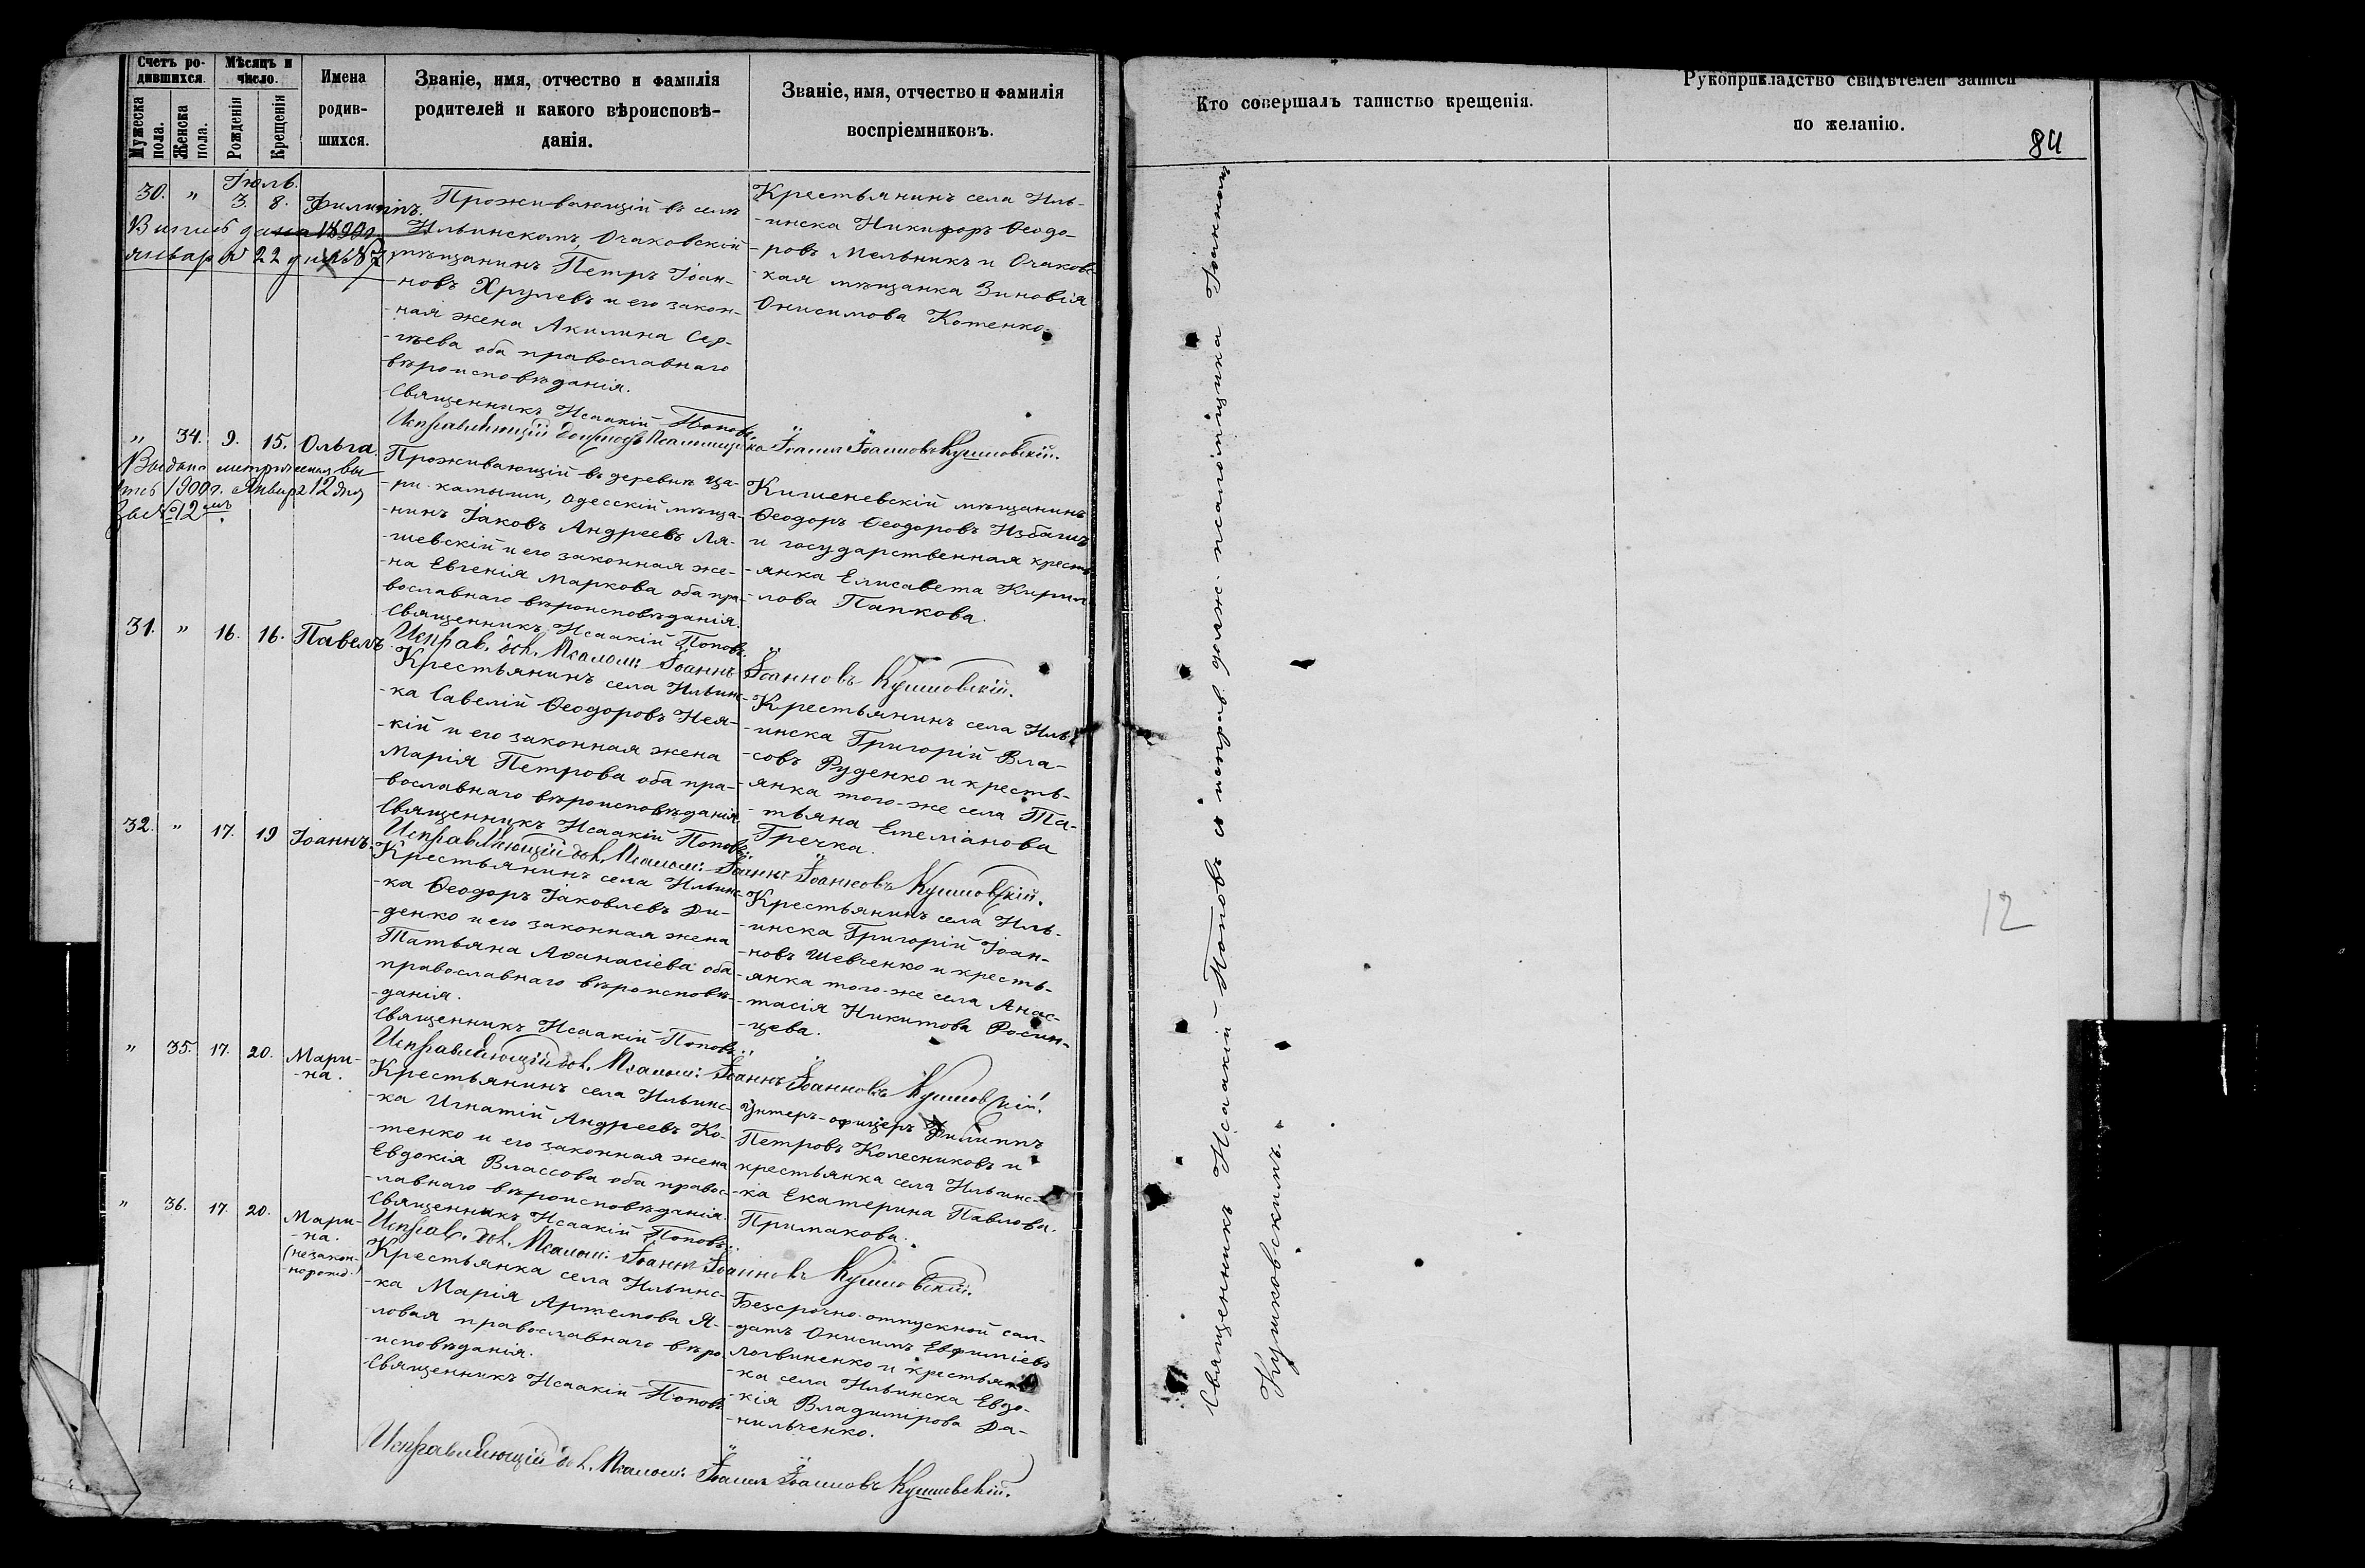 Счетъ ро-
дившихся.
Мужеска
пола.
Женска
пола.
Мѣсяцъ и
число.
Рожденія
Крещенія
Имена
родив-
шихся.
Званіе, имя, отчество и фамилія
родителей и какого вѣроисповѣ-
данія.
Званіе, имя, отчество и фамилія
воспріемниковъ.
Кто совершалъ таинство крещенія.
Рукоприкладство свидѣтелей записи
по желанію.
84
Іюль.
30. " 3. 8. Филиппъ.
января 22 дня
Проживающій въ селѣ
Ильинскомъ, Очаковскій
мѣщанинъ Петръ Іоан-
-новъ Хрулевъ и его закон-
-ная жена Акилина Сер-
-гѣева оба православнаго
вѣроисповѣданія.
Священникъ Исаакій Поповъ
Исправляющій Іоаннъ Іоанновъ Кушковскій.
Крестьянинъ села Иль-
-инска Никифоръ Ѳеодо-
-ровъ Мельникъ и Очаковс-
-кая мѣщанка Зиновія
Онисимова Котенко.
" 34. 9. 15. Ольга.
Выдана метрическая вы-
пись 1900 г. Января 12 дня
за № 12мъ.
Проживающій въ деревнѣ Ца-
-ри-камыши, Одесскій мѣща-
-нинъ Іаковъ Андреевъ Ля-
-шевскій и его законная же-
-на Евгенія Маркова оба пра-
вославнаго вѣроисповѣданія.
Священникъ Исаакій Поповъ.
Исправ. дол. Псалом: Іоаннъ Іоанновъ Кушковскій.
Кишеневскій мѣщанинъ
Ѳеодоръ Ѳеодоровъ Избашъ
и государственная кресть-
-янка Елисавета Кирил-
-лова Папкова.
31. " 16. 16. Павелъ.
Крестьянинъ села Ильинс-
-ка Савелій Ѳеодоровъ Нея-
-кій и его законная жена
Марія Петрова оба пра-
-вославнаго вѣроисповѣданія.
Священникъ Исаакій Поповъ.
Исправляющій дол. Псалом: Іоаннъ Іоанновъ Кушковскій.
Крестьянинъ села Иль-
-инска Григорій Вла-
-совъ Руденко и кресть-
-янка того-же села Та-
-тьяна Емеліанова
Гречка.
32. " 17. 19 Іоаннъ.
Крестьянинъ села Ильинс-
-ка Ѳеодоръ Іаковлевъ Ди-
-денко и его законная жена
Татьяна Аѳанасіева оба
православнаго вѣроисповѣ-
-данія.
Священникъ Исаакій Поповъ.
Исправляющій дол. Псалом: Іоаннъ Іоанновъ Кушковскій.
Крестьянинъ села Иль-
-инска Григорій Іоан-
-новъ Шевченко и кресть-
-янка того-же села Анас-
-тасія Никитова Росин-
-цева.
" 35. 17. 20. Мари-
-на.
Крестьянинъ села Ильинс-
-ка Игнатій Андреевъ Ко-
-тенко и его законная жена
Евдокія Влассова оба правос-
-лавнаго вѣроисповѣданія.
Священникъ Исаакій Поповъ.
Исправ. дол. Псалом: Іоаннъ Іоанновъ Кушковскій.
Унтеръ-офицеръ Филиппъ
Петровъ Колесниковъ и
крестьянка села Ильинс-
-ка Екатерина Павлова
Примакова.
" 36. 17. 20. Мари-
-на.
(незакон-
-норожд.)
Крестьянка села Ильинс-
-ка Марія Артемова Я-
-ловая православнаго вѣро-
-исповѣданія.
Священникъ Исаакій Поповъ
Исправляющій дол. Псалом: Іоаннъ Іоанновъ Кушковскій.
Безсрочно-отпускной сол-
-датъ Онисимъ Евфиміевъ
Логвиненко и крестьян-
-ка села Ильинска Евдо-
-кія Владимірова Да-
-нильченко.
Священникъ Исаакій Поповъ съ исправ. долж. псаломщика Іоанномъ
Кушковскимъ.
12